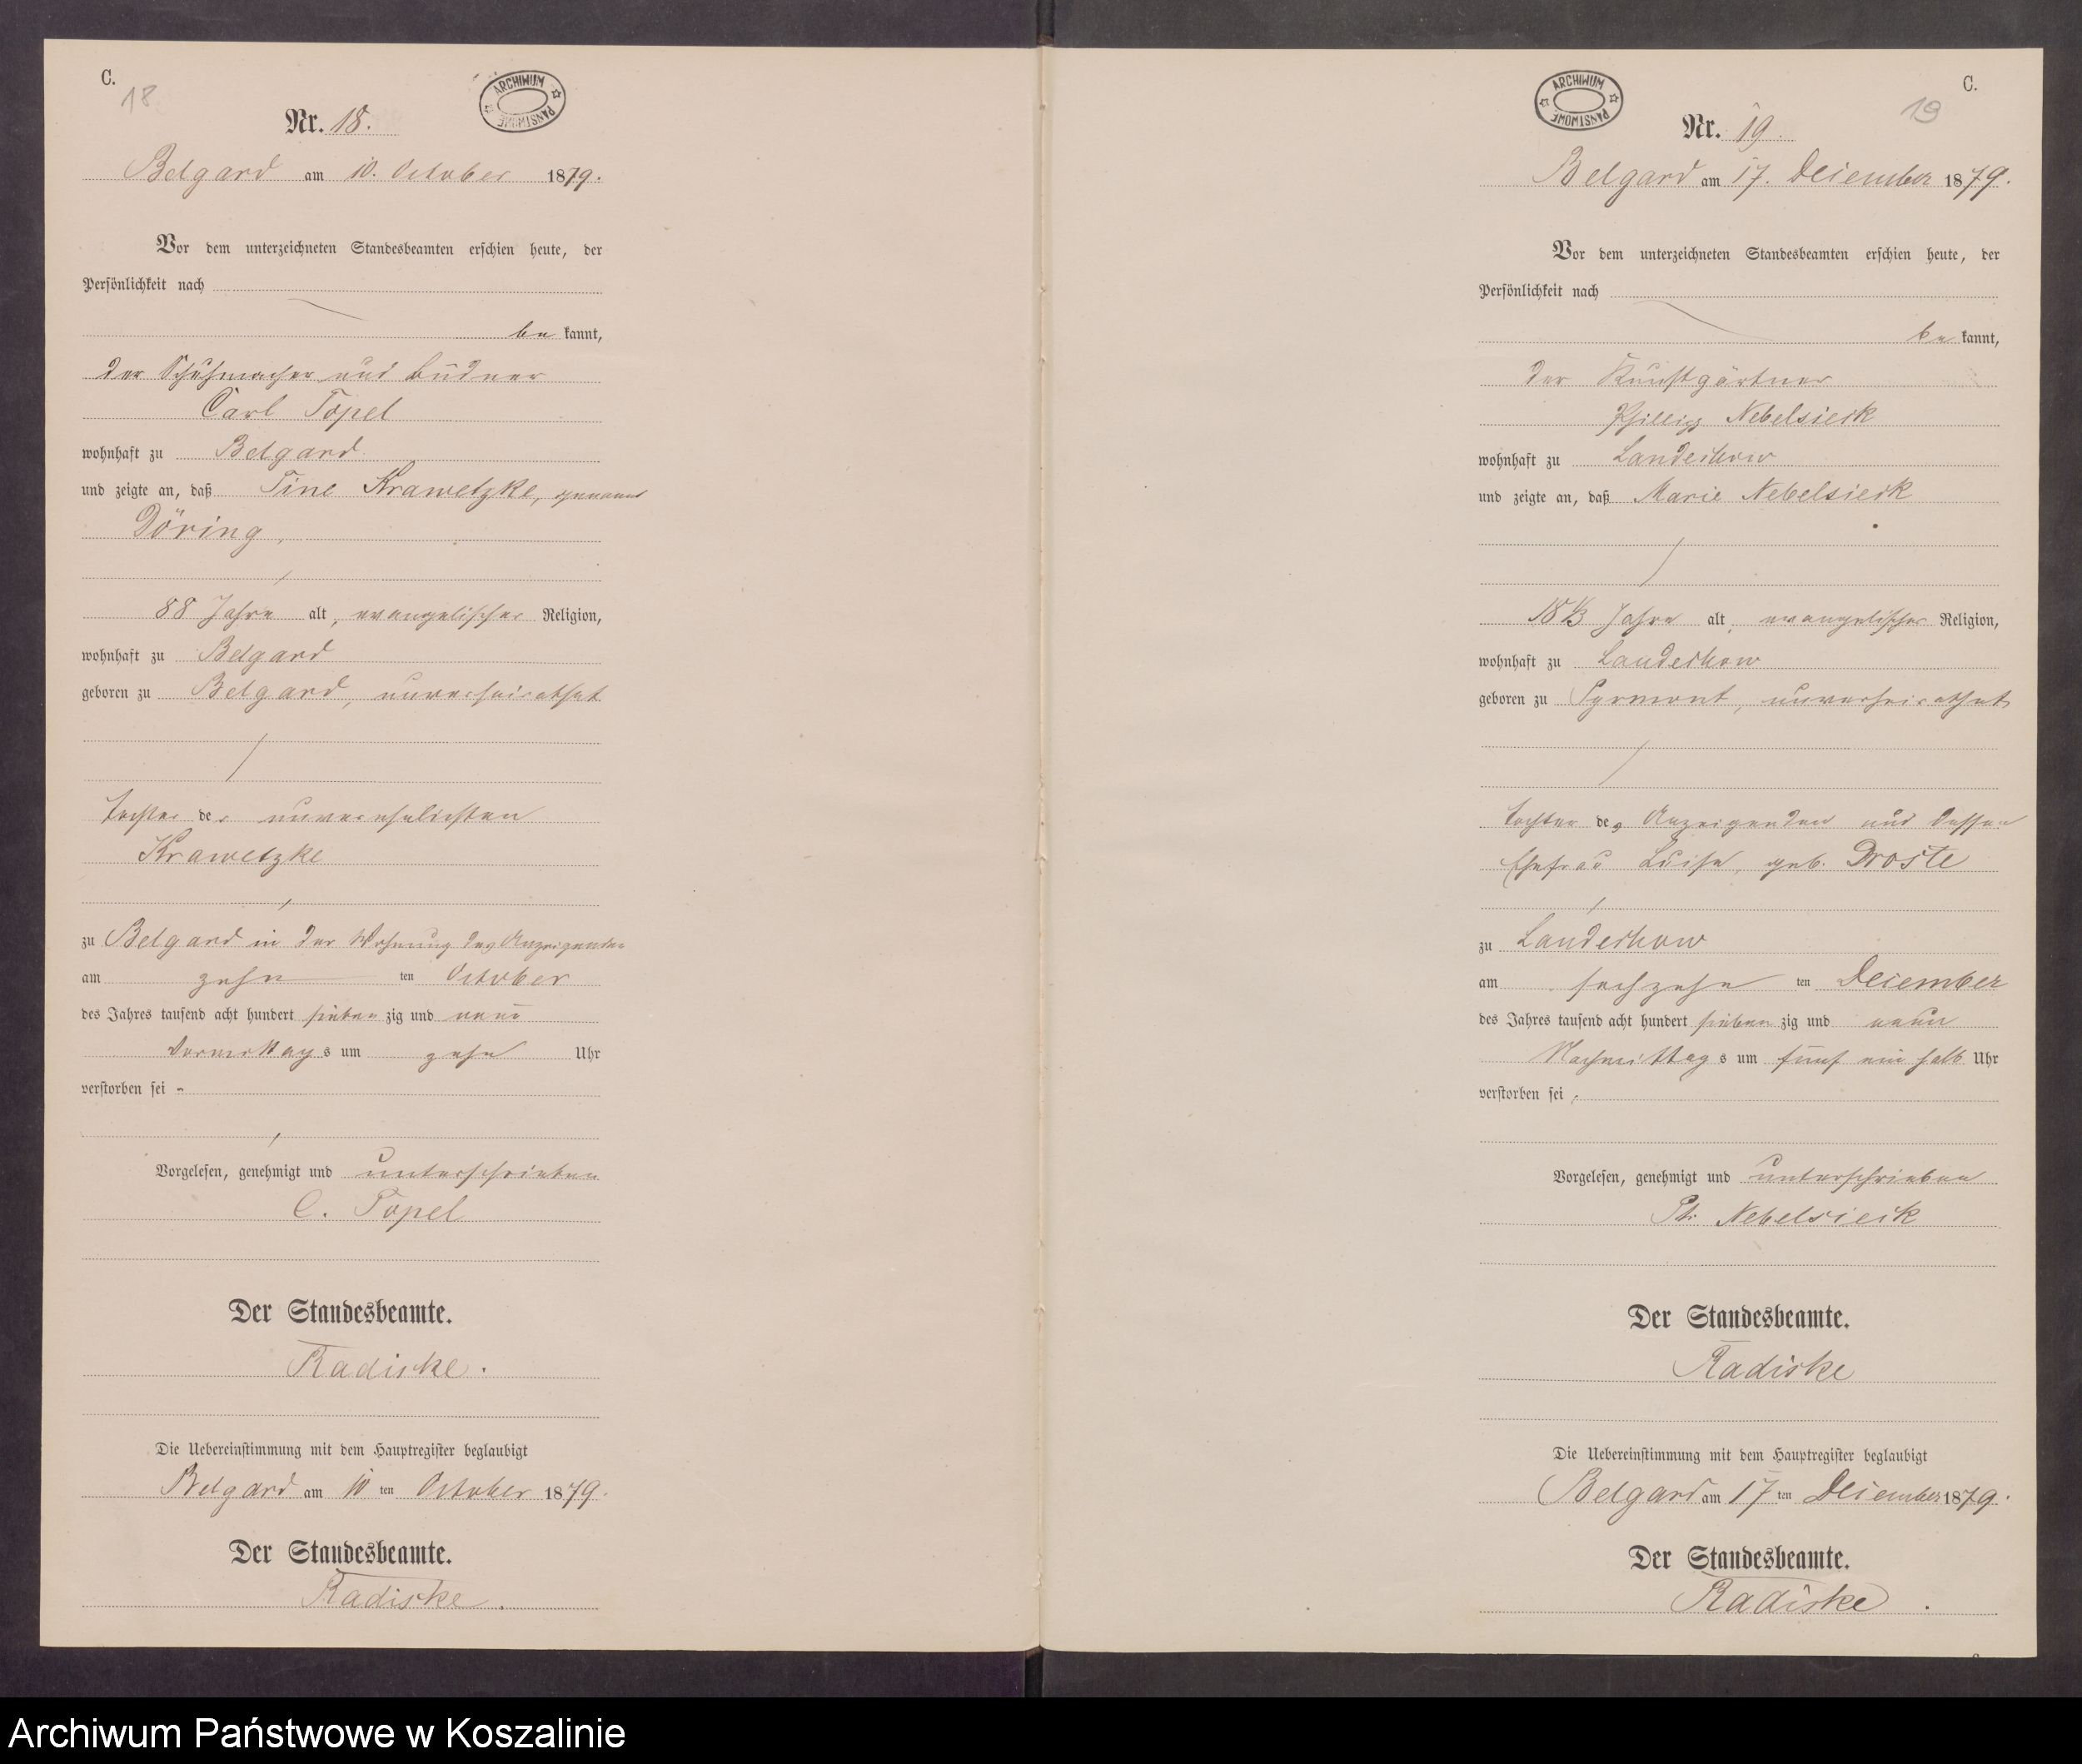 C.
18
ARCHIWUM PAŃSTWOWE
Nr. 18.
Belgard am 10. October 1879.
Vor dem unterzeichneten Standesbeamten erschien heute, der
Persönlichkeit nach
be kannt,
der Schuhmacher und Büdner
Carl Topel
wohnhaft zu Belgard
und zeigte an, daß Tine Krawetzke, genannt
Döring,
88 Jahre alt, evangelischer Religion,
wohnhaft zu Belgard
geboren zu Belgard, unverheirathet
Tochter der unverehelichten
Krawetzke
zu Belgard in der Wohnung des Anzeigenden
am zehn ten October
des Jahres tausend acht hundert sieben zig und neun
Vormittag s um zehn Uhr
verstorben sei
Vorgelesen, genehmigt und unterschrieben
C. Topel
Der Standesbeamte.
Radiske.
Die Uebereinstimmung mit dem Hauptregister beglaubigt
Belgard am 10 ten October 1879.
Der Standesbeamte.
Radiske.
ARCHIWUM PAŃSTWOWE
C.
19
Nr. 19.
Belgard am 17. December 1879.
Vor dem unterzeichneten Standesbeamten erschien heute, der
Persönlichkeit nach
be kannt,
der Kunstgärtner
Philipp Nebelsieck
wohnhaft zu Landechow
und zeigte an, daß Marie Nebelsieck
18 1/3 Jahre alt, evangelischer Religion,
wohnhaft zu Landechow
geboren zu Pyrmont, unverheirathet
Tochter des Anzeigenden und dessen
Ehefrau Luise, geb. Droste
zu Landechow
am sechzehn ten December
des Jahres tausend acht hundert sieben zig und neun
Nachmittag s um fünf ein halb Uhr
verstorben sei,
Vorgelesen, genehmigt und unterschrieben
Ph. Nebelsieck
Der Standesbeamte.
Radiske
Die Uebereinstimmung mit dem Hauptregister beglaubigt
Belgard am 17 ten December 1879.
Der Standesbeamte.
Radiske.
Archiwum Państwowe w Koszalinie